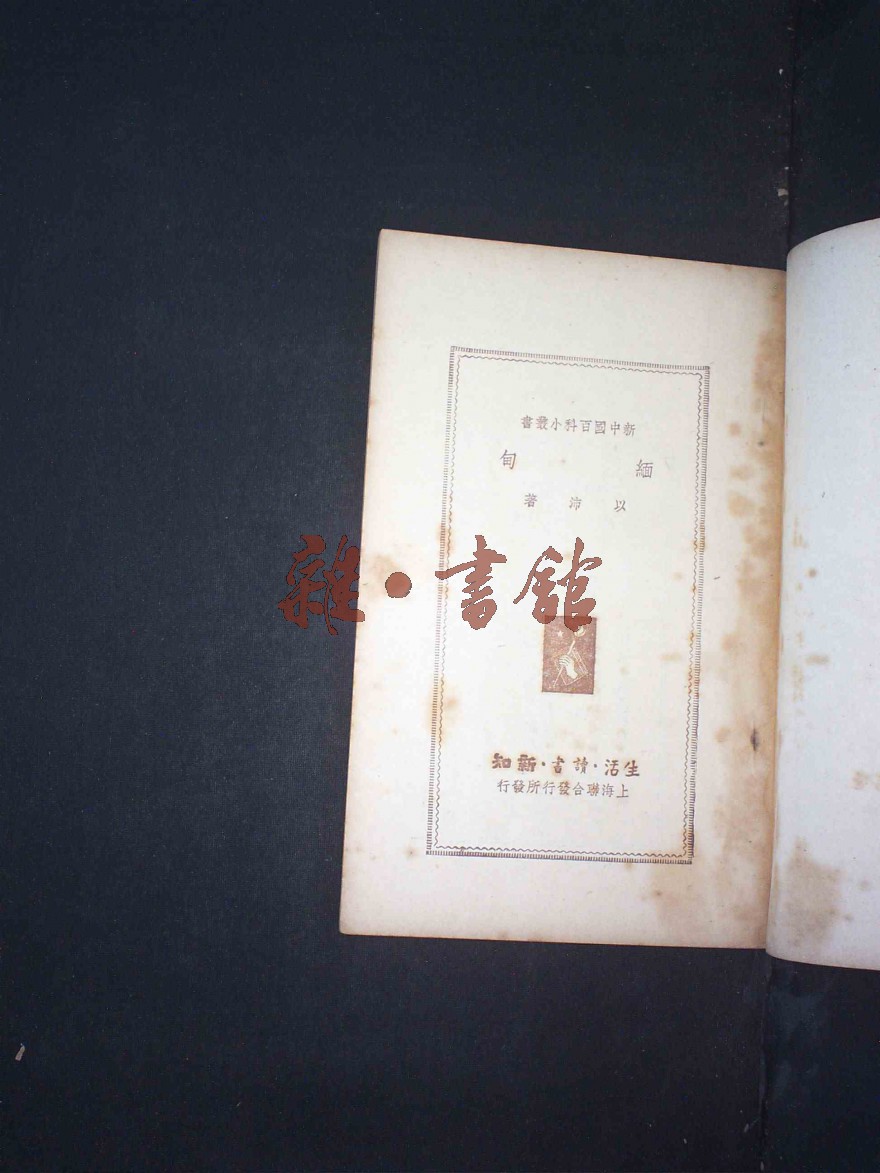 新中國百科小叢書
緬甸
以沛著
雜·書館
生活·讀書·新知
上海聯合發行所發行